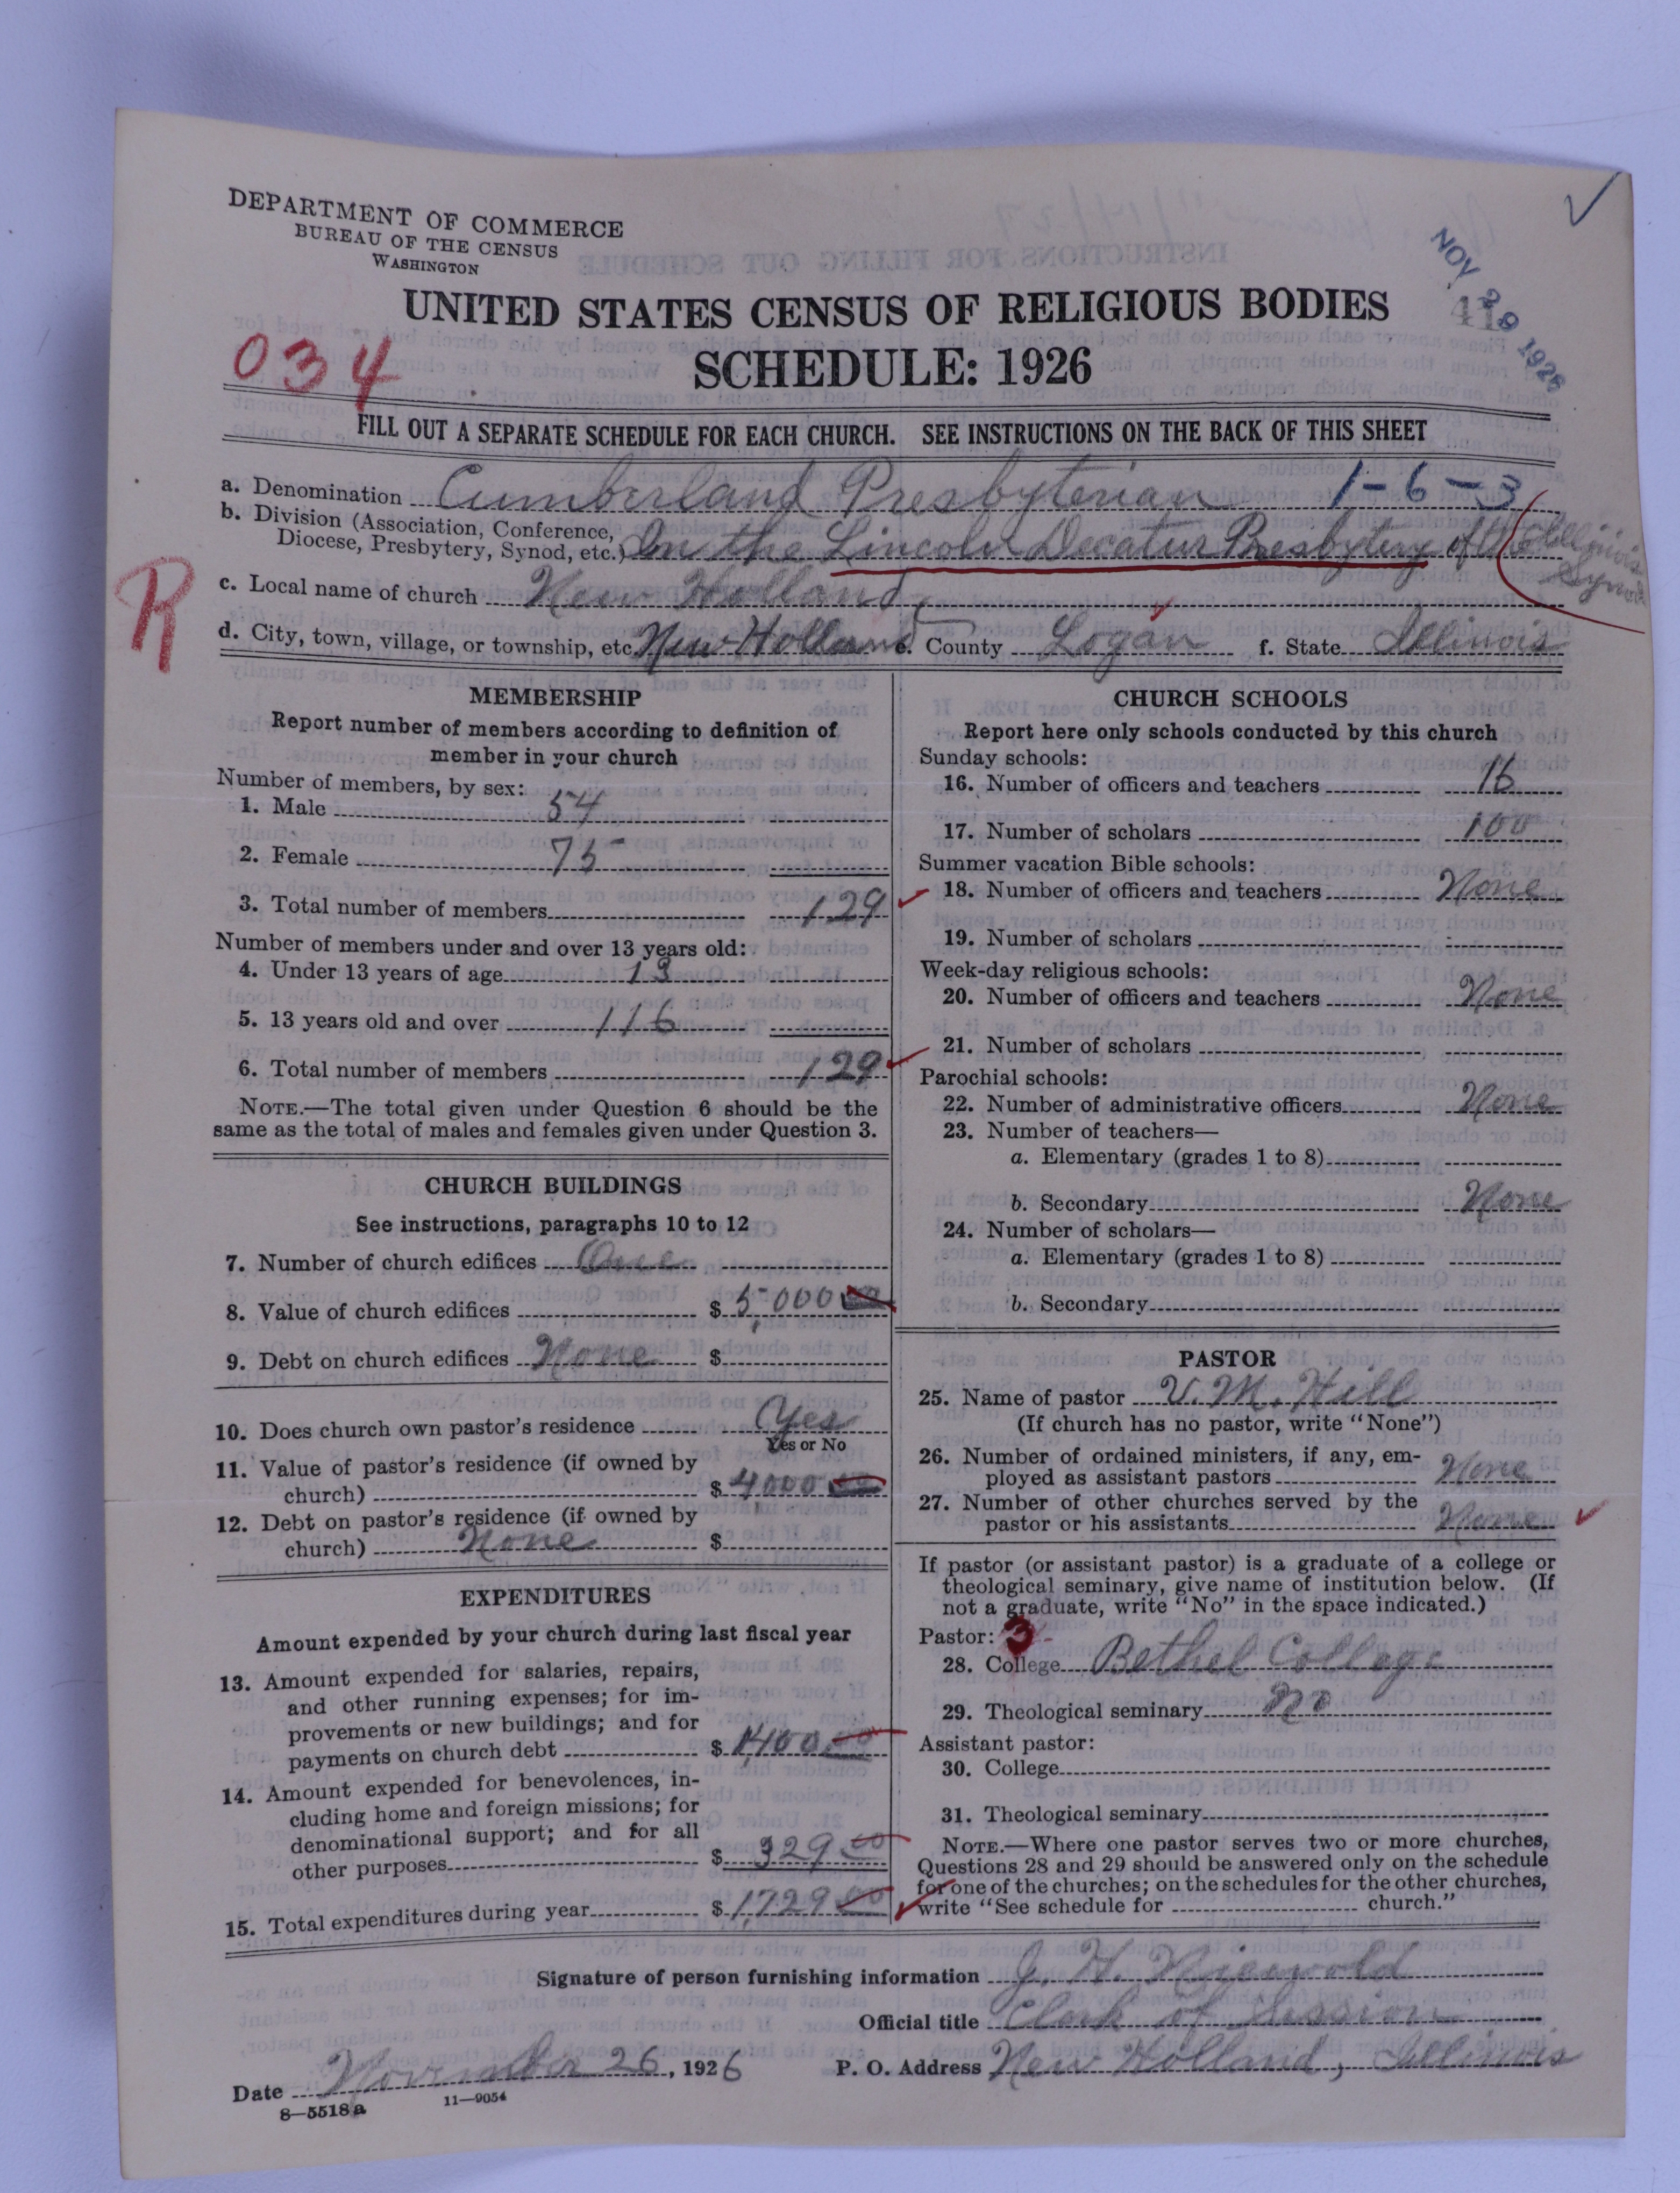 DEPARTMENT OF COMMERCE
BUREAU OF THE CENSUS
WASHINGTON
NOV 29 1926
41
UNITED STATES CENSUS OF RELIGIOUS BODIES
034
SCHEDULE: 1926
FILL OUT A SEPARATE SCHEDULE FOR EACH CHURCH. SEE INSTRUCTIONS ON THE BACK OF THIS SHEET
a. Denomination Cumberland Presbyterian 1-6-3
b. Division (Association, Conference,
Diocese, Presbytery, Synod, etc.) In the Lincoln Decatur Presbytery of the Illinois
Synod
R
c. Local name of church New Holland
d. City, town, village, or township, etc. New Holland e. County Logan f. State Illinois
MEMBERSHIP
Report number of members according to definition of
member in your church
Number of members, by sex:
1. Male 54
2. Female 75
3. Total number of members 129
Number of members under and over 13 years old:
4. Under 13 years of age 13
5. 13 years old and over 116
6. Total number of members 129
NOTE.—The total given under Question 6 should be the
same as the total of males and females given under Question 3.
CHURCH BUILDINGS
See instructions, paragraphs 10 to 12
7. Number of church edifices One
8. Value of church edifices $ 5,000 00
9. Debt on church edifices None $
10. Does church own pastor's residence Yes
Yes or No
11. Value of pastor's residence (if owned by
church) $ 4,000 00
12. Debt on pastor's residence (if owned by
church) None $
EXPENDITURES
Amount expended by your church during last fiscal year
13. Amount expended for salaries, repairs,
and other running expenses; for im-
provements or new buildings; and for
payments on church debt $ 1,400 00
14. Amount expended for benevolences, in-
cluding home and foreign missions; for
denominational support; and for all
other purposes $ 329 00
15. Total expenditures during year $ 1,729 00
CHURCH SCHOOLS
Report here only schools conducted by this church
Sunday schools:
16. Number of officers and teachers 16
17. Number of scholars 100
Summer vacation Bible schools:
18. Number of officers and teachers None
19. Number of scholars
Week-day religious schools:
20. Number of officers and teachers None
21. Number of scholars
Parochial schools:
22. Number of administrative officers None
23. Number of teachers—
a. Elementary (grades 1 to 8)
b. Secondary None
24. Number of scholars—
a. Elementary (grades 1 to 8)
b. Secondary
PASTOR
25. Name of pastor V. M. Hill
(If church has no pastor, write "None")
26. Number of ordained ministers, if any, em-
ployed as assistant pastors None
27. Number of other churches served by the
pastor or his assistants None
If pastor (or assistant pastor) is a graduate of a college or
theological seminary, give name of institution below. (If
not a graduate, write "No" in the space indicated.)
Pastor: 3
28. College Bethel College
29. Theological seminary No
Assistant pastor:
30. College
31. Theological seminary
NOTE.—Where one pastor serves two or more churches,
Questions 28 and 29 should be answered only on the schedule
for one of the churches; on the schedules for the other churches,
write "See schedule for church."
Signature of person furnishing information J. H. Niewold
Official title Clerk of Session
Date November 26, 1926 P. O. Address New Holland, Illinois
8—5518a 11—9054